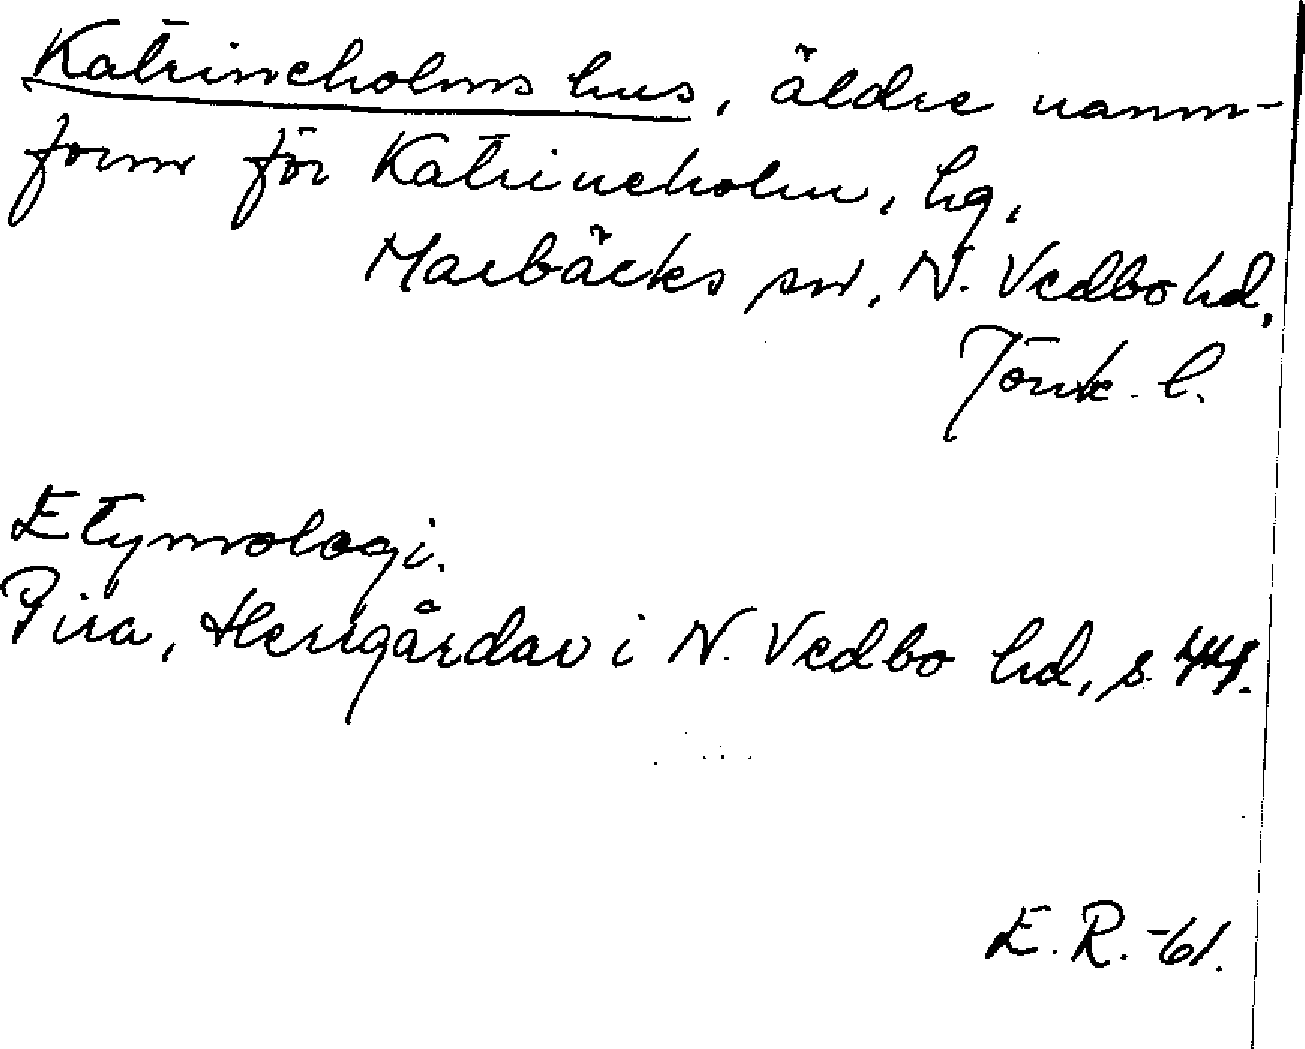 Katrineholms hus, äldre namn-
form för Katrineholm, hg,
Marbäcks sn, N. Vedbo hd,
Jönk. l.
Etymologi.
Pira, Herrgårdar i N. Vedbo hd, s. 44.
E. R. -61.